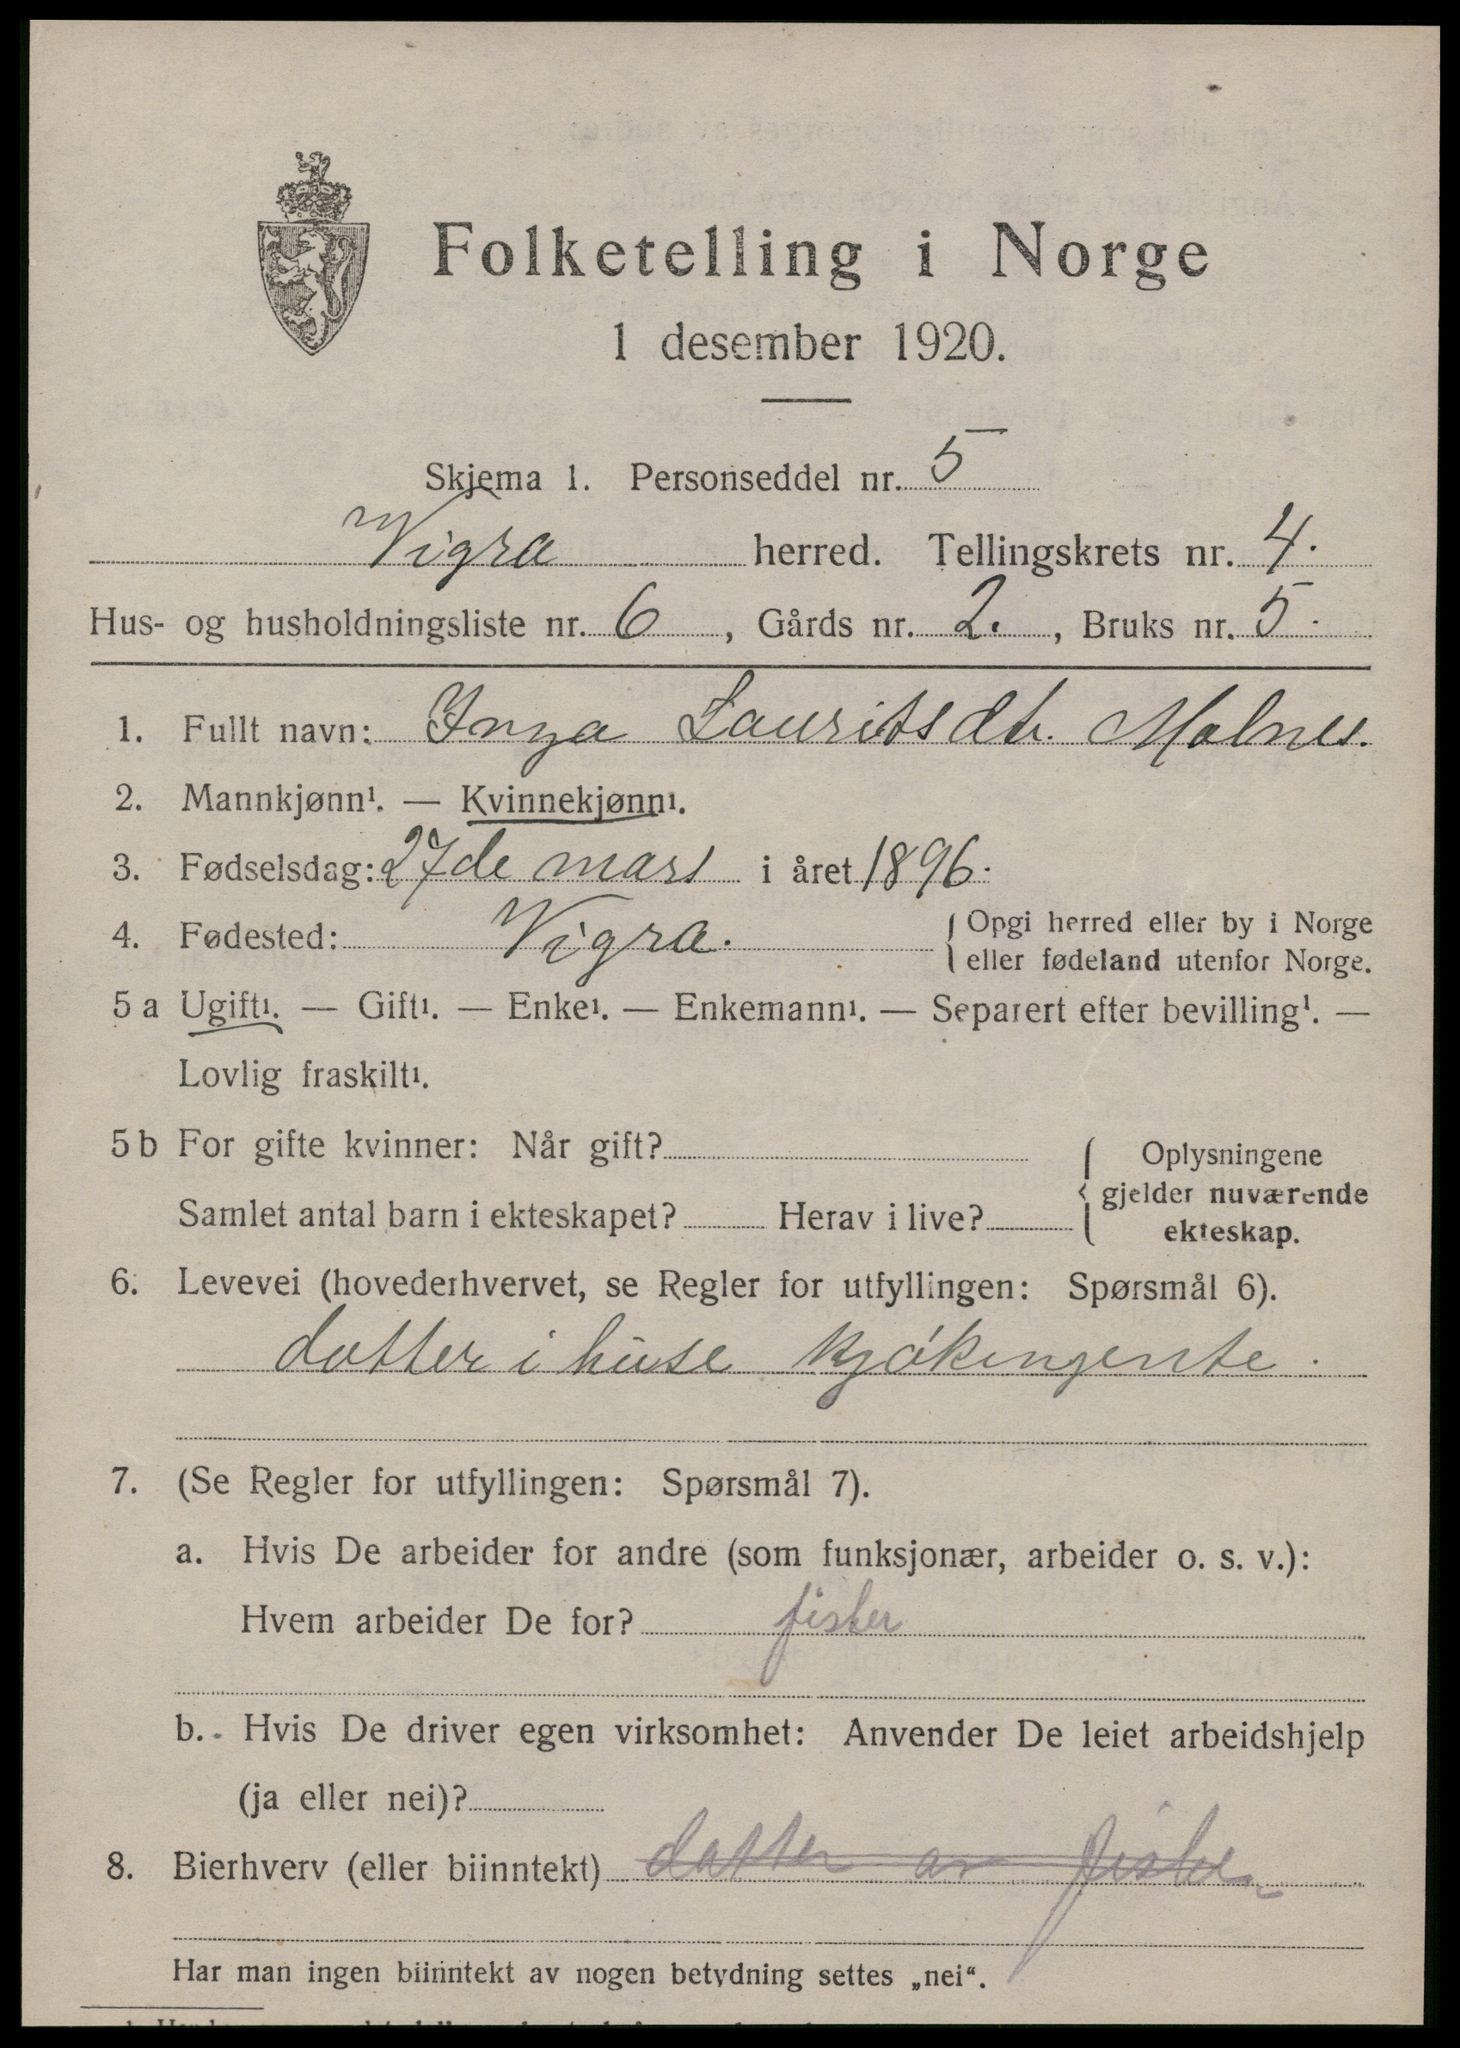 Folketelling i Norge
1 desember 1920.
Skjema 1. Personseddel nr. 5
Vigra herred. Tellingskrets nr. 4.
Hus- og husholdningsliste nr. 6, Gårds nr. 2., Bruks nr. 5.
1. Fullt navn: Inga Lauritsdtr. Molnes.
2. Mannkjønn¹. — Kvinnekjønn¹.
3. Fødselsdag: 27de mars i året 1896.
4. Fødested: Vigra. { Opgi herred eller by i Norge
eller fødeland utenfor Norge.
5 a Ugift¹. — Gift¹. — Enke¹. — Enkemann¹. — Separert efter bevilling¹. —
Lovlig fraskilt¹.
5 b For gifte kvinner: Når gift?
Samlet antal barn i ekteskapet? Herav i live?
{ Oplysningene
gjelder nuværende
ekteskap.
6. Levevei (hovederhvervet, se Regler for utfyllingen: Spørsmål 6).
datter i huse kjökengente.
7. (Se Regler for utfyllingen: Spørsmål 7).
a. Hvis De arbeider for andre (som funksjonær, arbeider o. s. v.):
Hvem arbeider De for? fisker
b. Hvis De driver egen virksomhet: Anvender De leiet arbeidshjelp
(ja eller nei)?
8. Bierhverv (eller biinntekt) datter av fisker
Har man ingen biinntekt av nogen betydning settes „nei“.